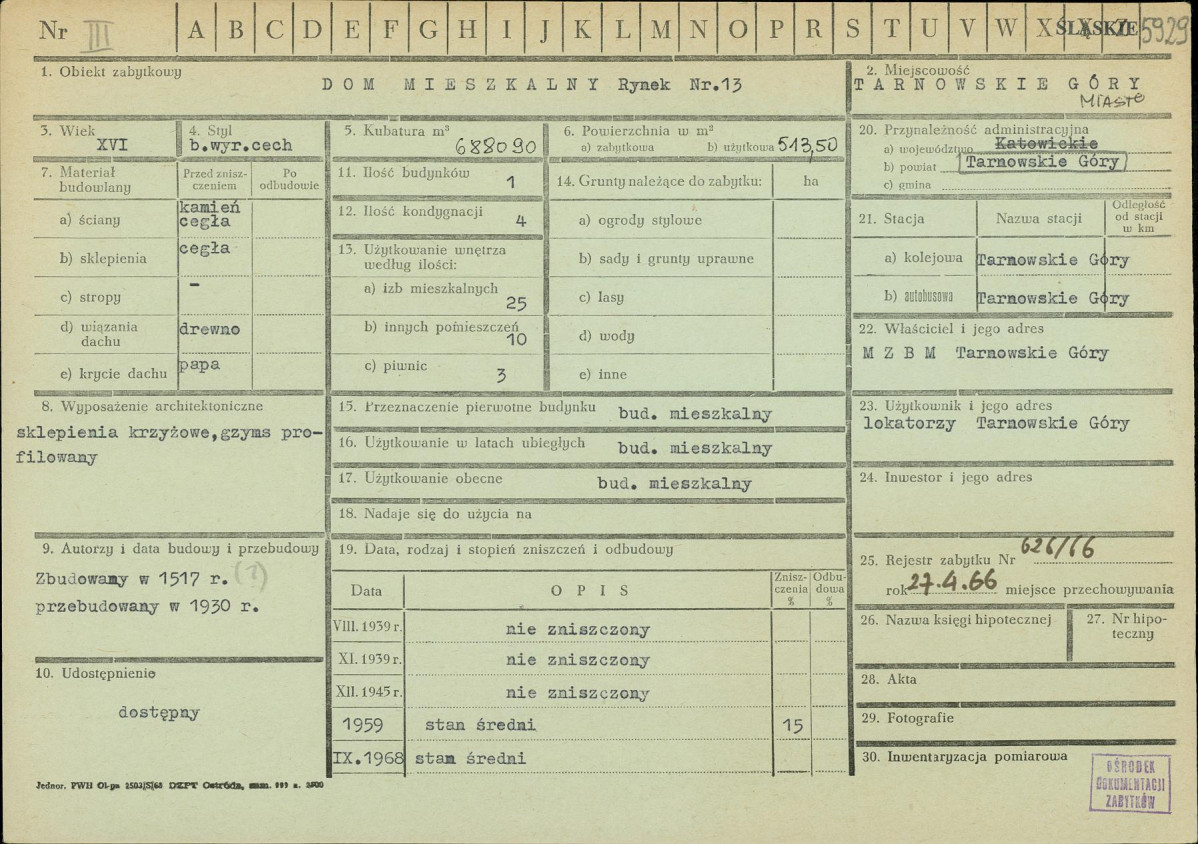 Nr III A B C D E F G H I J K L M N O P R S T U V W X Y Z ŚLĄSKIE 5929
1. Obiekt zabytkowy
DOM MIESZKALNY Rynek Nr.13
2. Miejscowość
TARNOWSKIE GÓRY
MIASTO
3. Wiek
XVI
4. Styl
b.wyr.cech
5. Kubatura m³
688090
6. Powierzchnia w m²
a) zabytkowa b) użytkowa 513,50
20. Przynależność administracyjna
a) województwo Katowickie
b) powiat Tarnowskie Góry
c) gmina
7. Materiał budowlany
Przed zniszczeniem
Po odbudowie
a) ściany kamień cegła
b) sklepienia cegła
c) stropy -
d) wiązania dachu drewno
e) krycie dachu papa
11. Ilość budynków 1
12. Ilość kondygnacji 4
13. Użytkowanie wnętrza
według ilości:
a) izb mieszkalnych 25
b) innych pomieszczeń 10
c) piwnic 3
14. Grunty należące do zabytku: ha
a) ogrody stylowe
b) sady i grunty uprawne
c) lasy
d) wody
e) inne
21. Stacja Nazwa stacji Odległość od stacji w km
a) kolejowa Tarnowskie Góry
b) autobusowa Tarnowskie Góry
22. Właściciel i jego adres
M Z B M Tarnowskie Góry
8. Wyposażenie architektoniczne
sklepienia krzyżowe,gzyms pro-
filowany
15. Przeznaczenie pierwotne budynku bud. mieszkalny
16. Użytkowanie w latach ubiegłych bud. mieszkalny
17. Użytkowanie obecne bud. mieszkalny
18. Nadaje się do użycia na
23. Użytkownik i jego adres
lokatorzy Tarnowskie Góry
24. Inwestor i jego adres
9. Autorzy i data budowy i przebudowy
Zbudowany w 1517 r. (?)
przebudowany w 1930 r.
10. Udostępnienie
dostępny
19. Data, rodzaj i stopień zniszczeń i odbudowy
Data OPIS Zniszczenia % Odbudowa %
VIII. 1939 r. nie zniszczony
XI. 1939 r. nie zniszczony
XII. 1945 r. nie zniszczony
1959 stan średni 15
IX.1968 stan średni
25. Rejestr zabytku Nr 626/66
rok 27.4.66 miejsce przechowywania
26. Nazwa księgi hipotecznej
27. Nr hipoteczny
28. Akta
29. Fotografie
30. Inwentaryzacja pomiarowa
OŚRODEK
DOKUMENTACJI
ZABYTKÓW
Jednor. PWH Ol-pa DZPT Ostróda, zam.